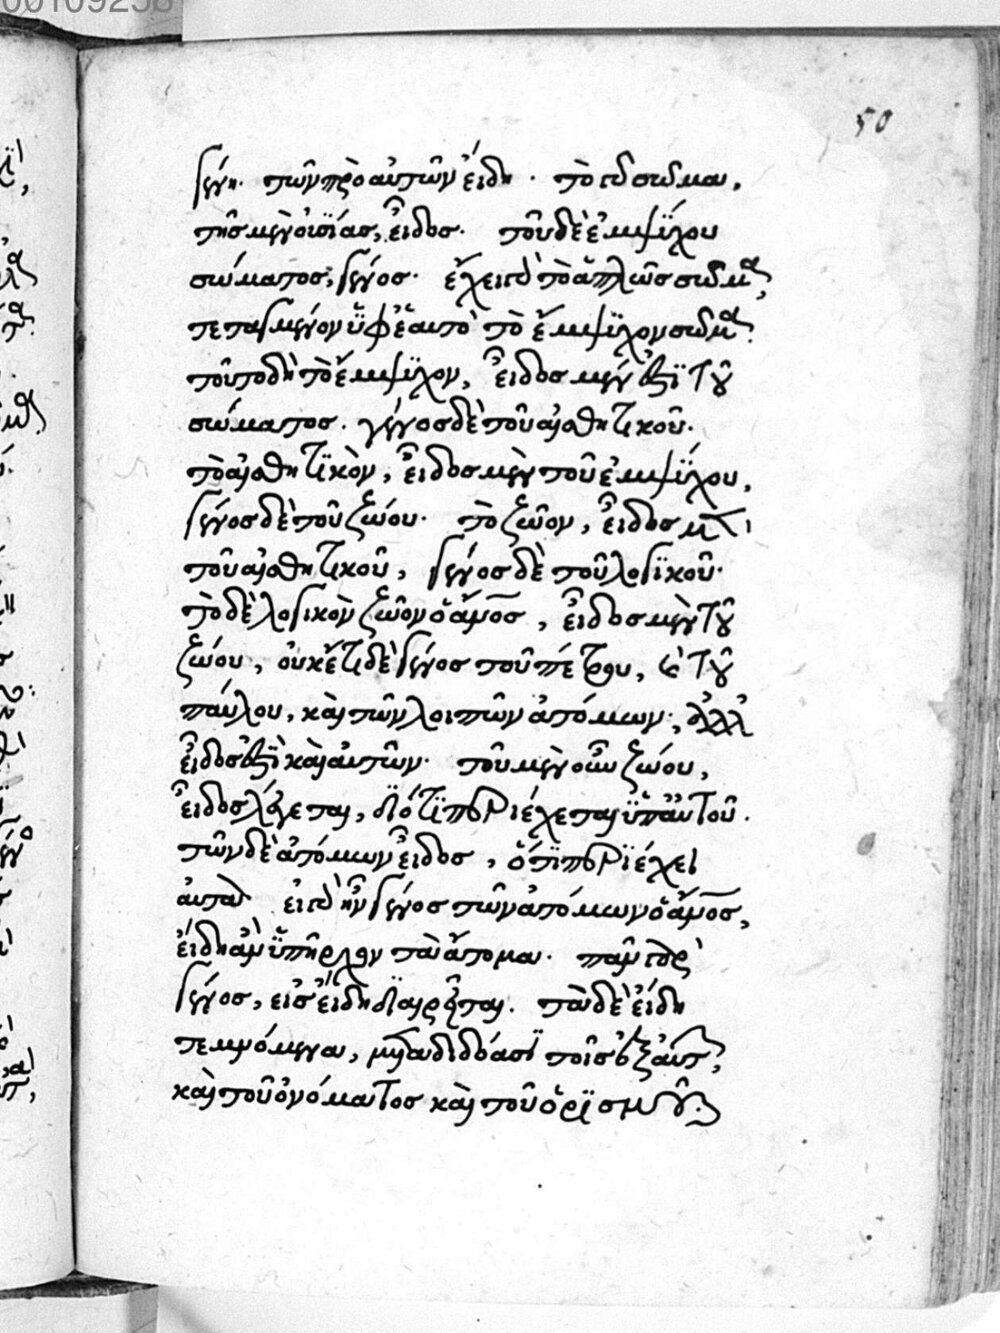 00109258
50
γένη. τῶν πρὸ αὐτῶν εἴδη. τὸ γὰρ σῶμα,
τῆς μὲν οὐσίας, εἶδος. τοῦ δὲ ἐμψύχου
σώματος, γένος. ἔχει γὰρ τὸ ἁπλῶς σῶμα,
τεταγμένον ὑφ' ἑαυτὸ τὸ ἔμψυχον σῶμα.
τοῦτο δὴ τὸ ἔμψυχον, εἶδος μέν ἐστι τοῦ
σώματος. γένος δὲ τοῦ αἰσθητικοῦ.
τὸ αἰσθητικὸν, εἶδος μὲν τοῦ ἐμψύχου,
γένος δὲ τοῦ ζώου. τὸ ζῶον, εἶδος μὲν
τοῦ αἰσθητικοῦ, γένος δὲ τοῦ λογικοῦ.
τὸ δὲ λογικὸν ζῶον ὁ ἄνος, εἶδος μὲν τοῦ
ζώου, οὐκέτι δὲ γένος τοῦ πέτρου, καὶ τοῦ
παύλου, καὶ τῶν λοιπῶν ἀτόμων, ἀλλ'
εἶδός ἐστι καὶ αὐτῶν. τοῦ μὲν οὖν ζώου,
εἶδος λέγεται, διότι περιέχεται ὑπ' αὐτοῦ.
τῶν δὲ ἀτόμων εἶδος, ὅτι περιέχει
αὐτά. εἰ γὰρ ἦν γένος τῶν ἀτόμων ὁ ἄνος,
εἴδη ἂν ὑπῆρχον τὰ ἄτομα. πᾶν γὰρ
γένος, εἰς εἴδη διαιρεῖται. τὰ δὲ εἴδη
τεμνόμενα, μεταδιδόασι τοῖς ἐξ αὐτῶν,
καὶ τοῦ ὀνόματος καὶ τοῦ ὁρισμοῦ.